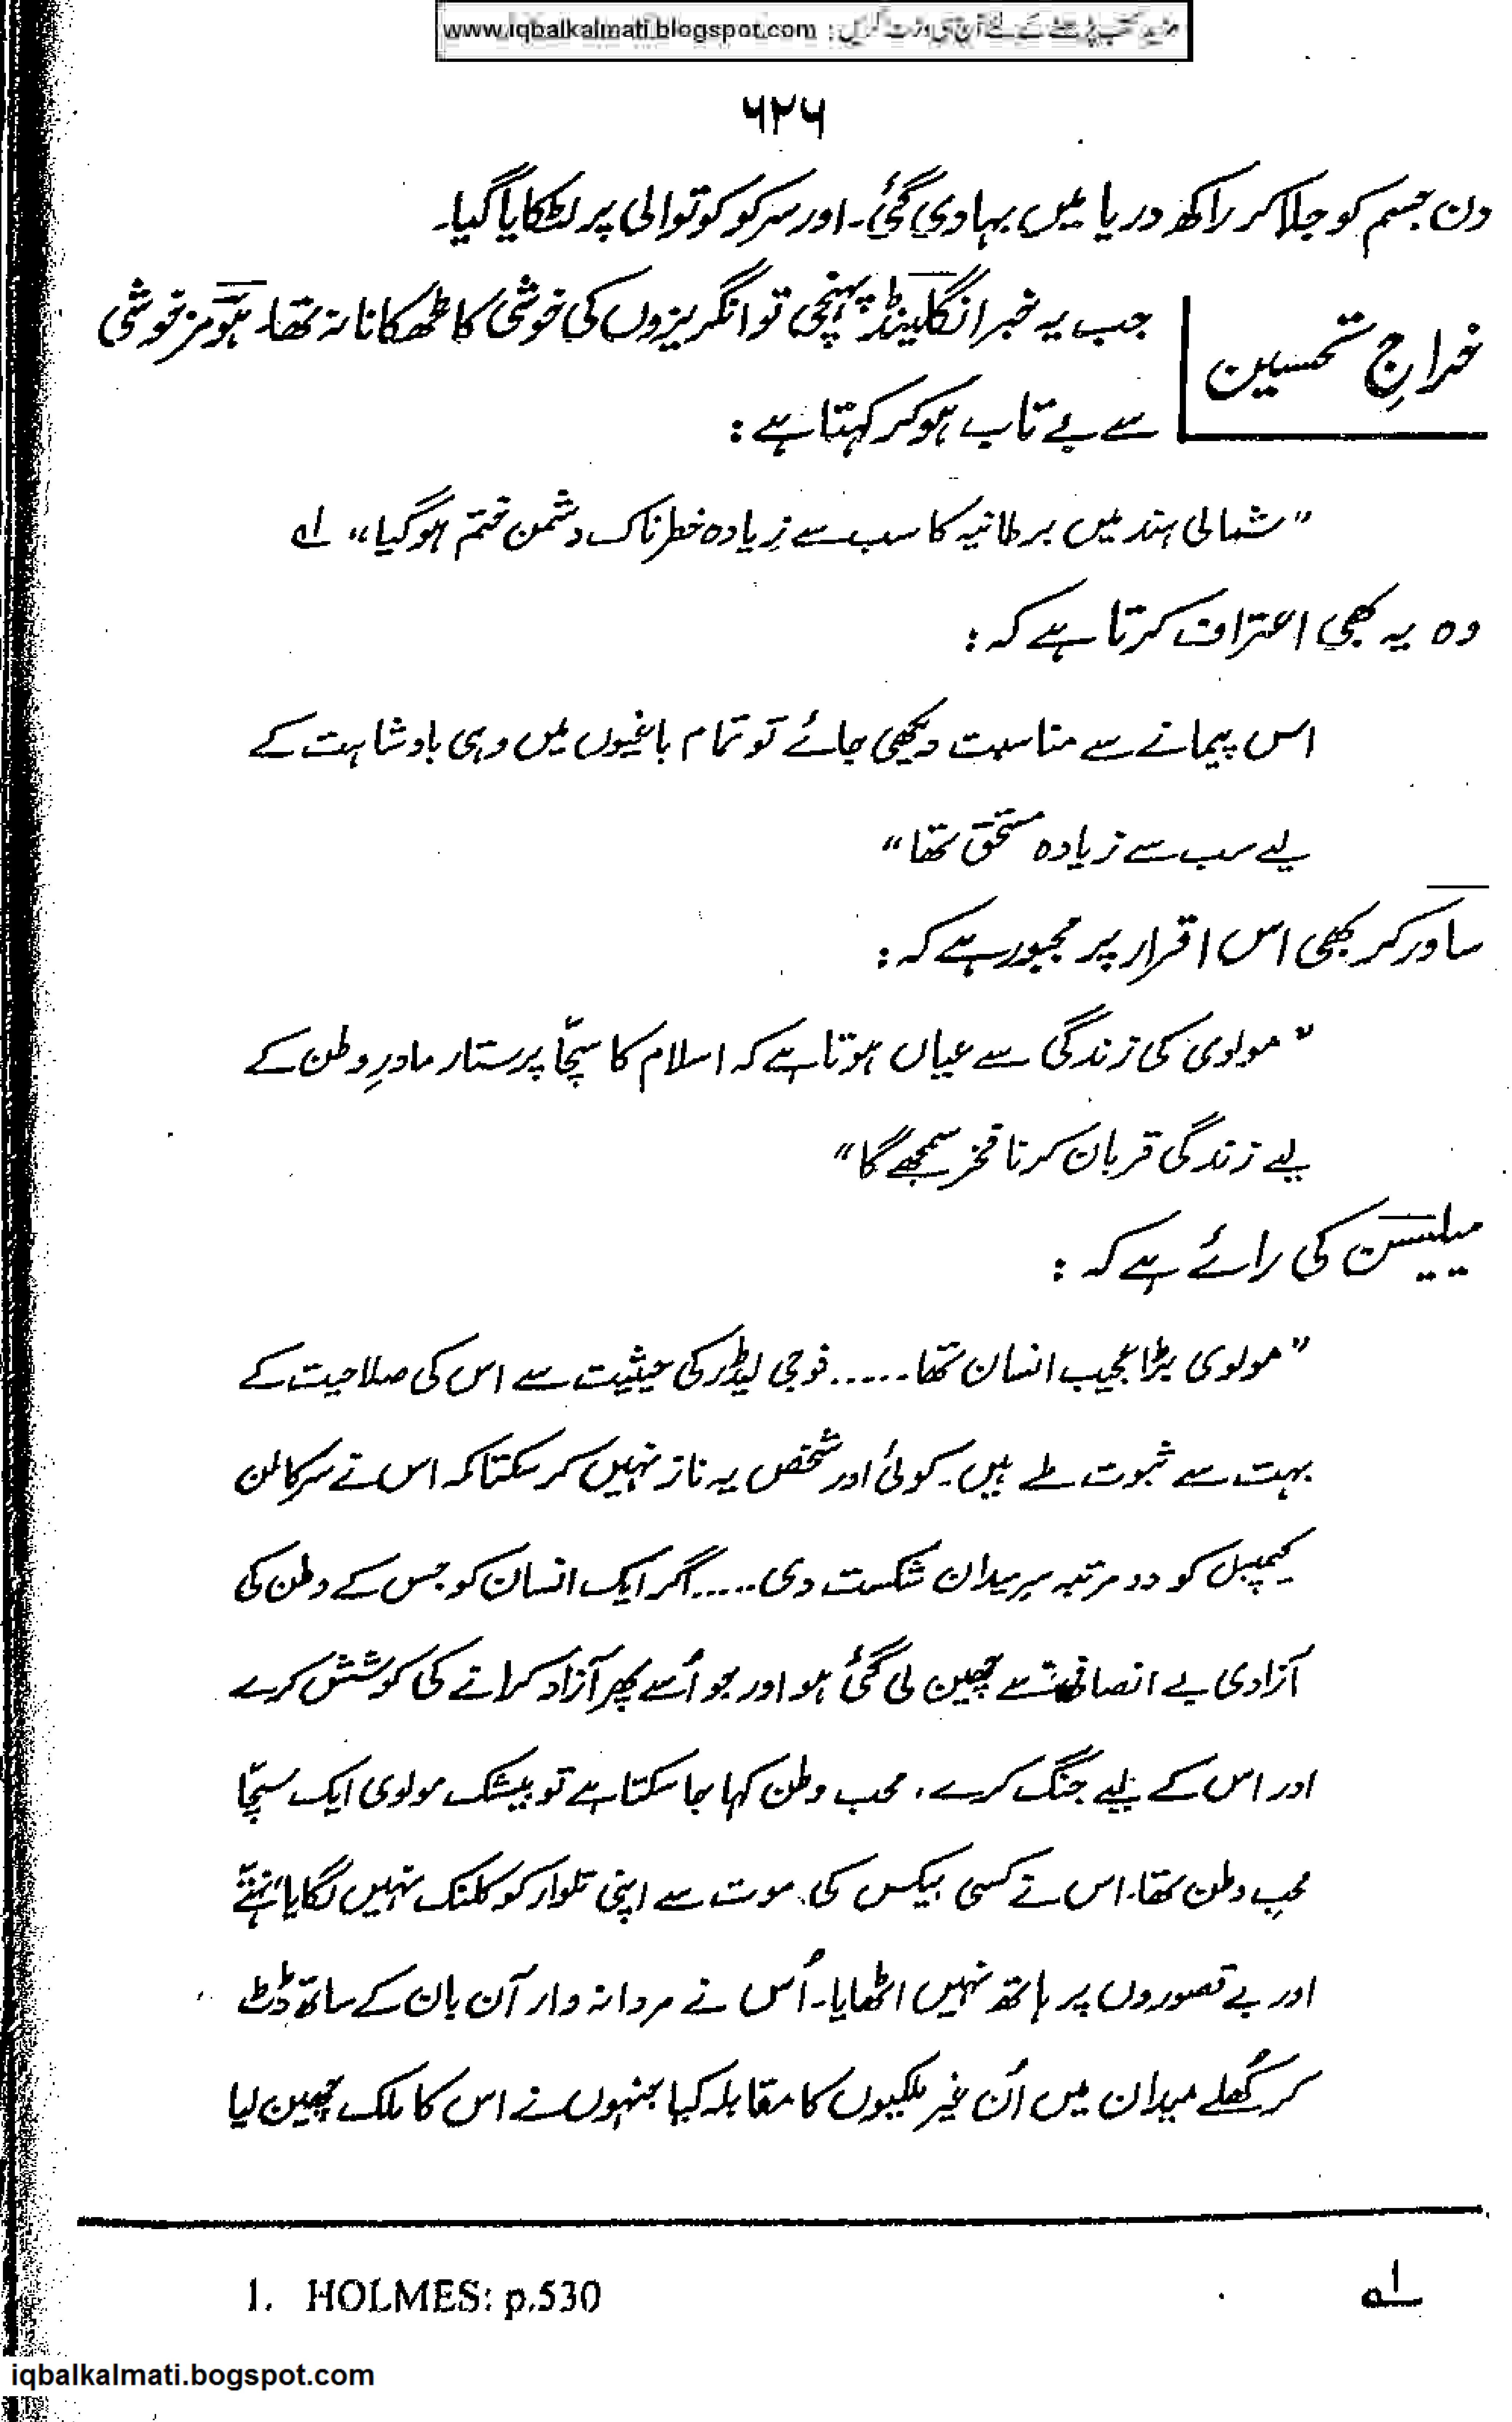 مزید کتب پڑھنے کے لئے آج ہی وزٹ کریں : www.iqbalkalmati.blogspot.com
۶۲۶
دن جسم کو جلا کر راکھ دریا میں بہا دی گئی۔ اور سر کو کوتوالی پر لٹکایا گیا۔
خراجِ تحسین
جب یہ خبر انگلینڈ پہنچی تو انگریزوں کی خوشی کا ٹھکانا نہ تھا۔ ہومز خوشی
سے بے تاب ہو کر کہتا ہے :
"شمالی ہند میں برطانیہ کا سب سے زیادہ خطرناک دشمن ختم ہو گیا" ۱؎
وہ یہ بھی اعتراف کرتا ہے کہ :
اس پیمانے سے مناسبت دیکھی جائے تو تمام باغیوں میں وہی بادشاہت کے
لیے سب سے زیادہ مستحق تھا"
ساورکر بھی اس اقرار پر مجبور ہے کہ :
"مولوی کی زندگی سے عیاں ہوتا ہے کہ اسلام کا سچّا پرستار مادرِ وطن کے
لیے زندگی قربان کرنا فخر سمجھے گا"
میلیسن کی رائے ہے کہ :
"مولوی بڑا عجیب انسان تھا...... فوجی لیڈر کی حیثیت سے اس کی صلاحیت کے
بہت سے ثبوت ملے ہیں۔ کوئی اور شخص یہ ناز نہیں کر سکتا کہ اس نے سر کالن
کیمپبل کو دو مرتبہ سرمیدان شکست دی..... اگر ایک انسان کو جس کے وطن کی
آزادی بے انصافی سے چھین لی گئی ہو اور جو اُسے پھر آزاد کرانے کی کوشش کرے
اور اس کے لیے جنگ کرے، محب وطن کہا جا سکتا ہے تو بیشک مولوی ایک سچّا
محبِ وطن تھا۔ اس نے کسی بیکس کی موت سے اپنی تلوار کو کلنک نہیں لگایا، نہتّے
اور بے قصوروں پر ہاتھ نہیں اٹھایا۔ اُس نے مردانہ وار آن بان کے ساتھ ڈٹ
کر کھُلے میدان میں اُن غیر ملکیوں کا مقابلہ کیا جنہوں نے اس کا ملک چھین لیا
۱؎
1. HOLMES: p.530
iqbalkalmati.bogspot.com